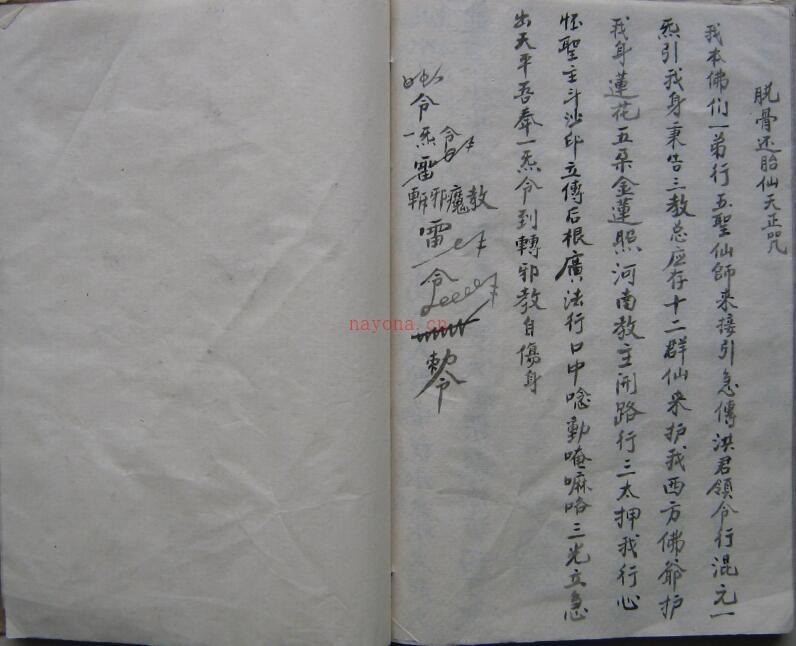 脱骨还胎仙天正咒
我本佛们一弟行五聖仙師来接引急傳洪君領令行混元一
炁引我身禀告三教总应存十二群仙来护我西方佛爺护
我身蓮花五朵金蓮照河南教主開路行三太押我行心
怪聖主斗沙印立傳后根廣法行口中唸動唵嘛咯三光立急
出天平吾奉一炁令到轉邪教自傷身
令
一炁雷
斬邪魔教
雷
令
敕令
nayona.cn